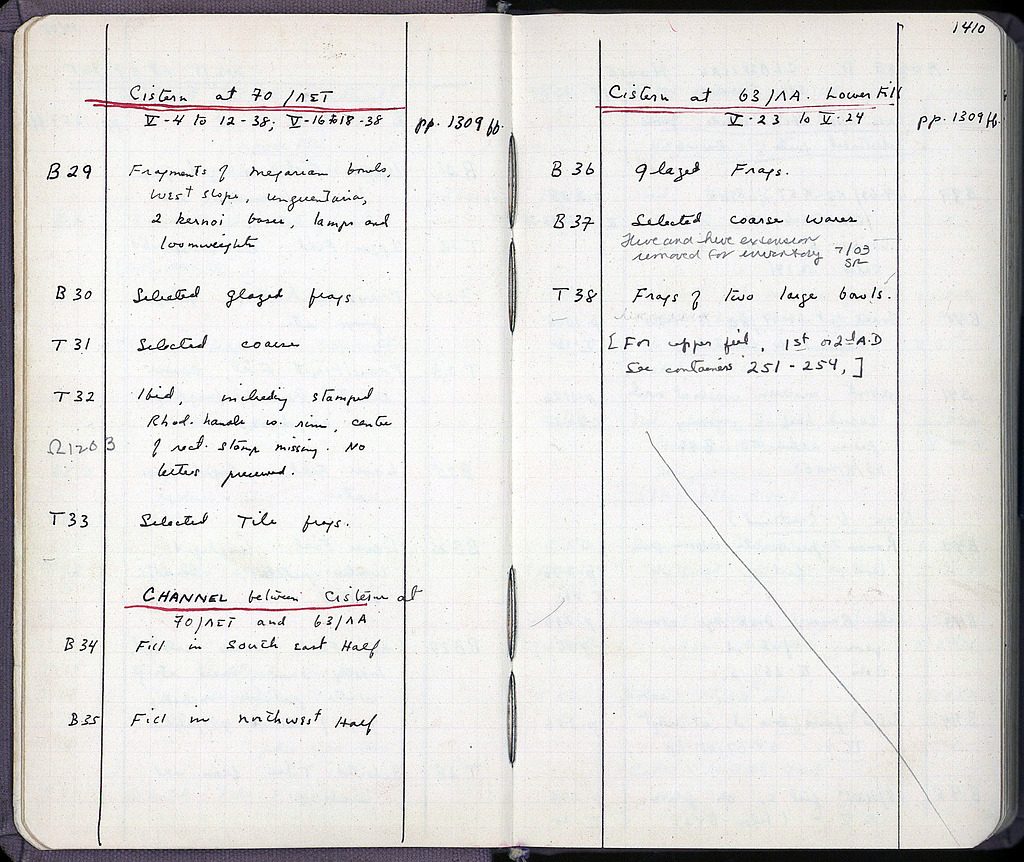 Cistern at 70/ΛΣΤ
V-4 to 12-38; V-16 to 18-38 pp. 1309 ff.
B 29 Fragments of megarian bowls,
West slope, unguentaria,
2 kernoi bases, lamps and
loomweights
B 30 Selected glazed frags.
T 31 Selected coarse
T 32 Ibid, including stamped
Rhod. handle w. rim, centre
Ω1203 of rect. stamp missing. No
letters preserved.
T 33 Selected Tile frags.
CHANNEL between Cisterns at
70/ΛΣΤ and 63/ΛΑ
B 34 Fill in South East Half
B 35 Fill in northwest Half
1410
Cistern at 63/ΛΑ. Lower Fill
V-23 to V-24 pp. 1309 ff.
B 36 glazed Frags.
B 37 Selected coarse wares
Hive and hive extension
removed for inventory 7/03
SR
T 38 Frags of two large bowls.
[For upper fill, 1st or 2nd A.D
See containers 251-254,]